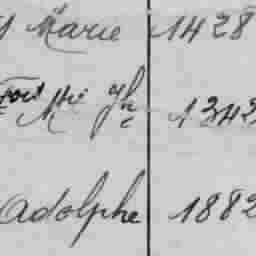 Marie 1428
Mtre 1342
adolphe 1882